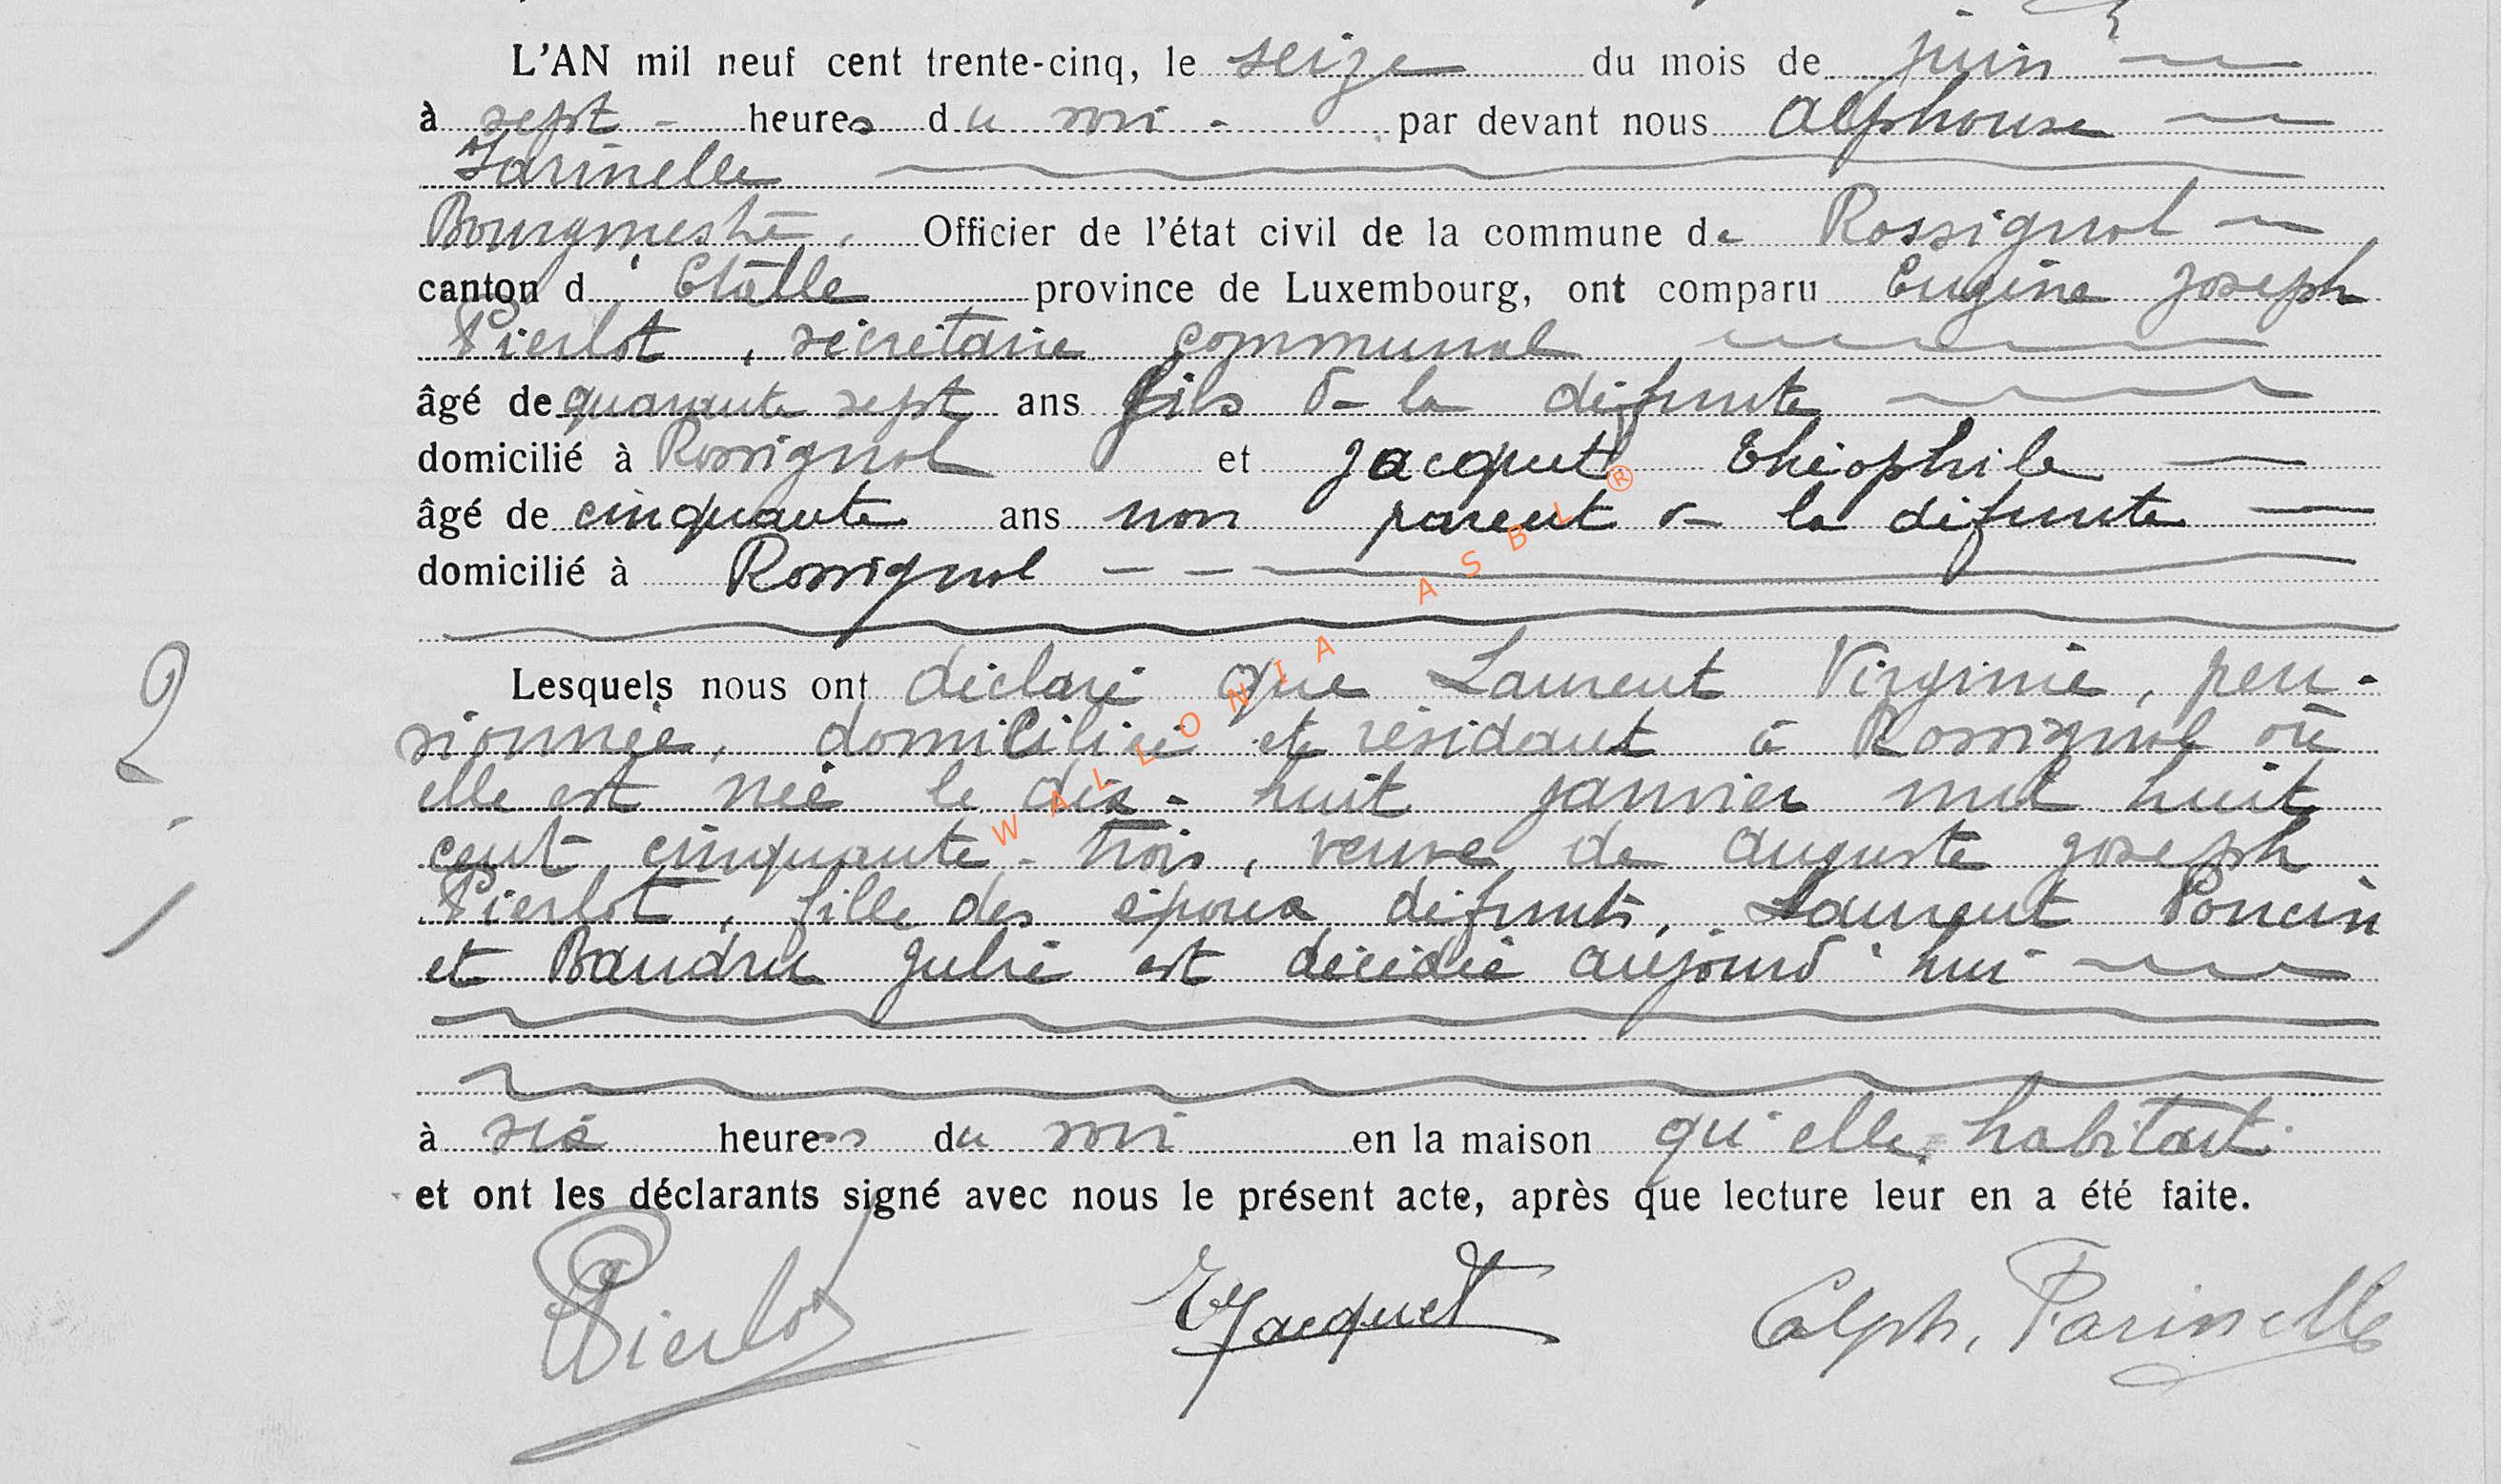 L'AN mil neuf cent trente-cinq, le seize du mois de juin
à sept heures du soir par devant nous Alphonse
Farinelle
Bourgmestre, Officier de l'état civil de la commune de Rossignol
canton d'Etalle province de Luxembourg, ont comparu Eugène Joseph
Pierlot, secrétaire communal
âgé de quarante sept ans fils de la défunte
domicilié à Rossignol et Jacquet Théophile
âgé de cinquante ans non parent de la défunte
domicilié à Rossignol
Lesquels nous ont déclaré que Laurent Virginie, pen-
sionnée, domiciliée et résidant à Rossignol où
elle est née le dix-huit janvier mil huit
cent cinquante-trois, veuve de Auguste Joseph
Pierlot, fille des époux défunts, Laurent Poncin
et Baudru Julie est décédée aujourd'hui
à six heures du soir en la maison qu'elle habitait.
et ont les déclarants signé avec nous le présent acte, après que lecture leur en a été faite.
Pierlot Jacquet Alph. Farinelle
2
WALLONIA ASBL ®